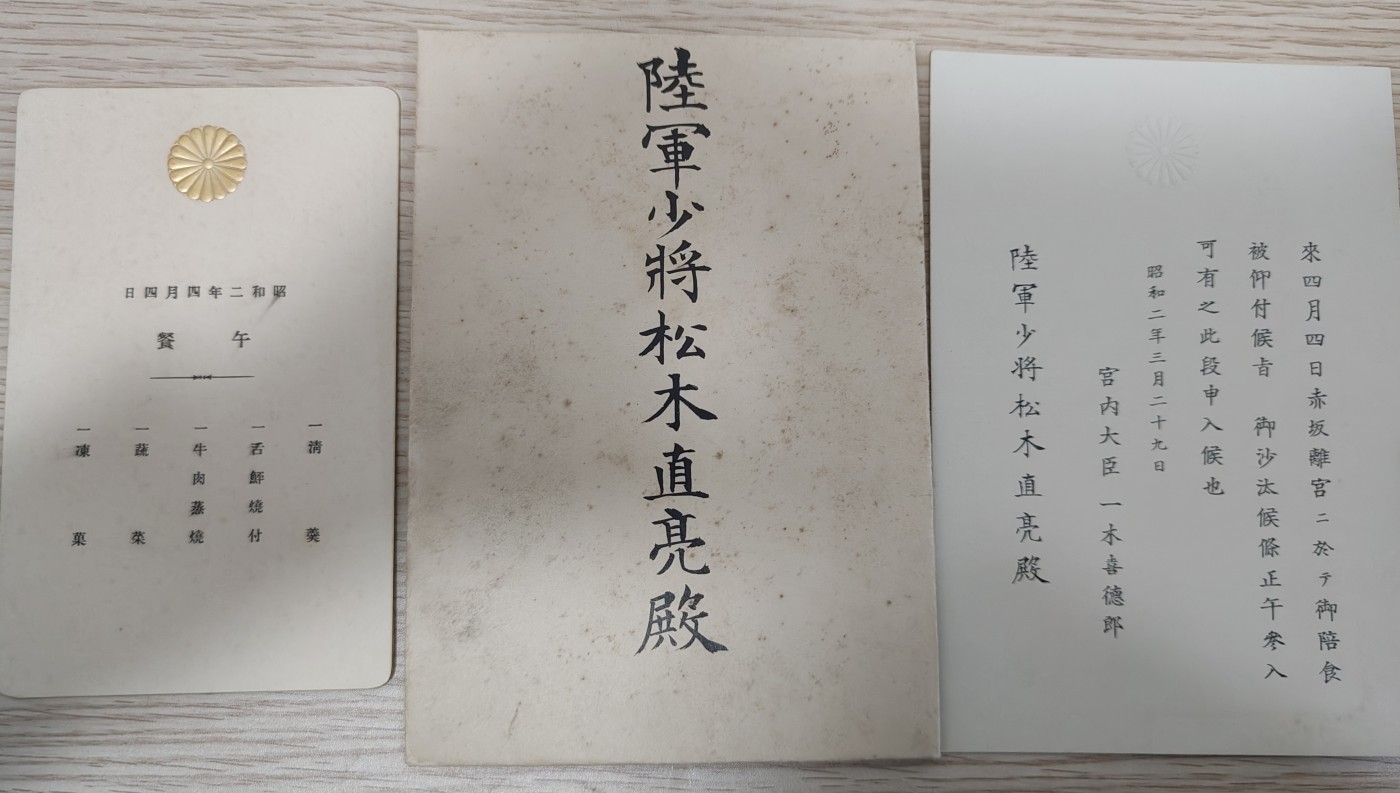 昭和二年四月四日
午餐
一清羹
一舌鮃燒付
一牛肉蒸燒
一蔬菜
一凍菓
陸軍少將松木直亮殿
來四月四日赤坂離宮ニ於テ御陪食
被仰付候旨 御沙汰候條正午參入
可有之此段申入候也
昭和二年三月二十九日
宮内大臣 一木喜德郎
陸軍少将松木直亮殿